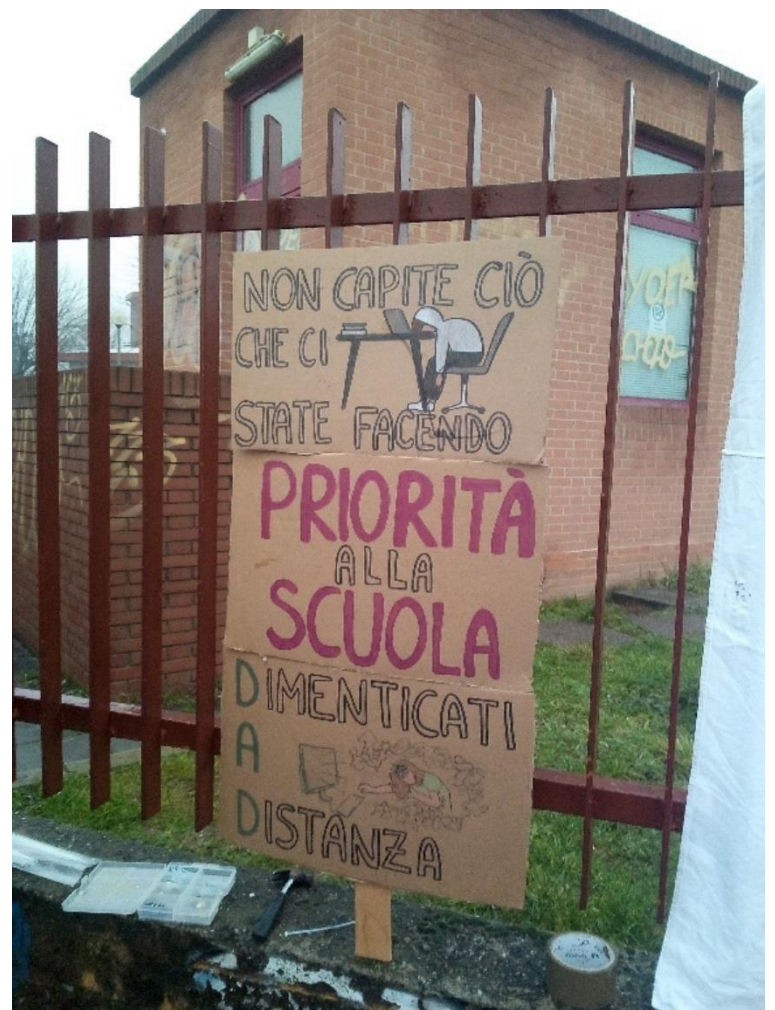 NON CAPITE CIÒ
CHE CI
STATE FACENDO
PRIORITÀ
ALLA
SCUOLA
DIMENTICATI
A
DISTANZA